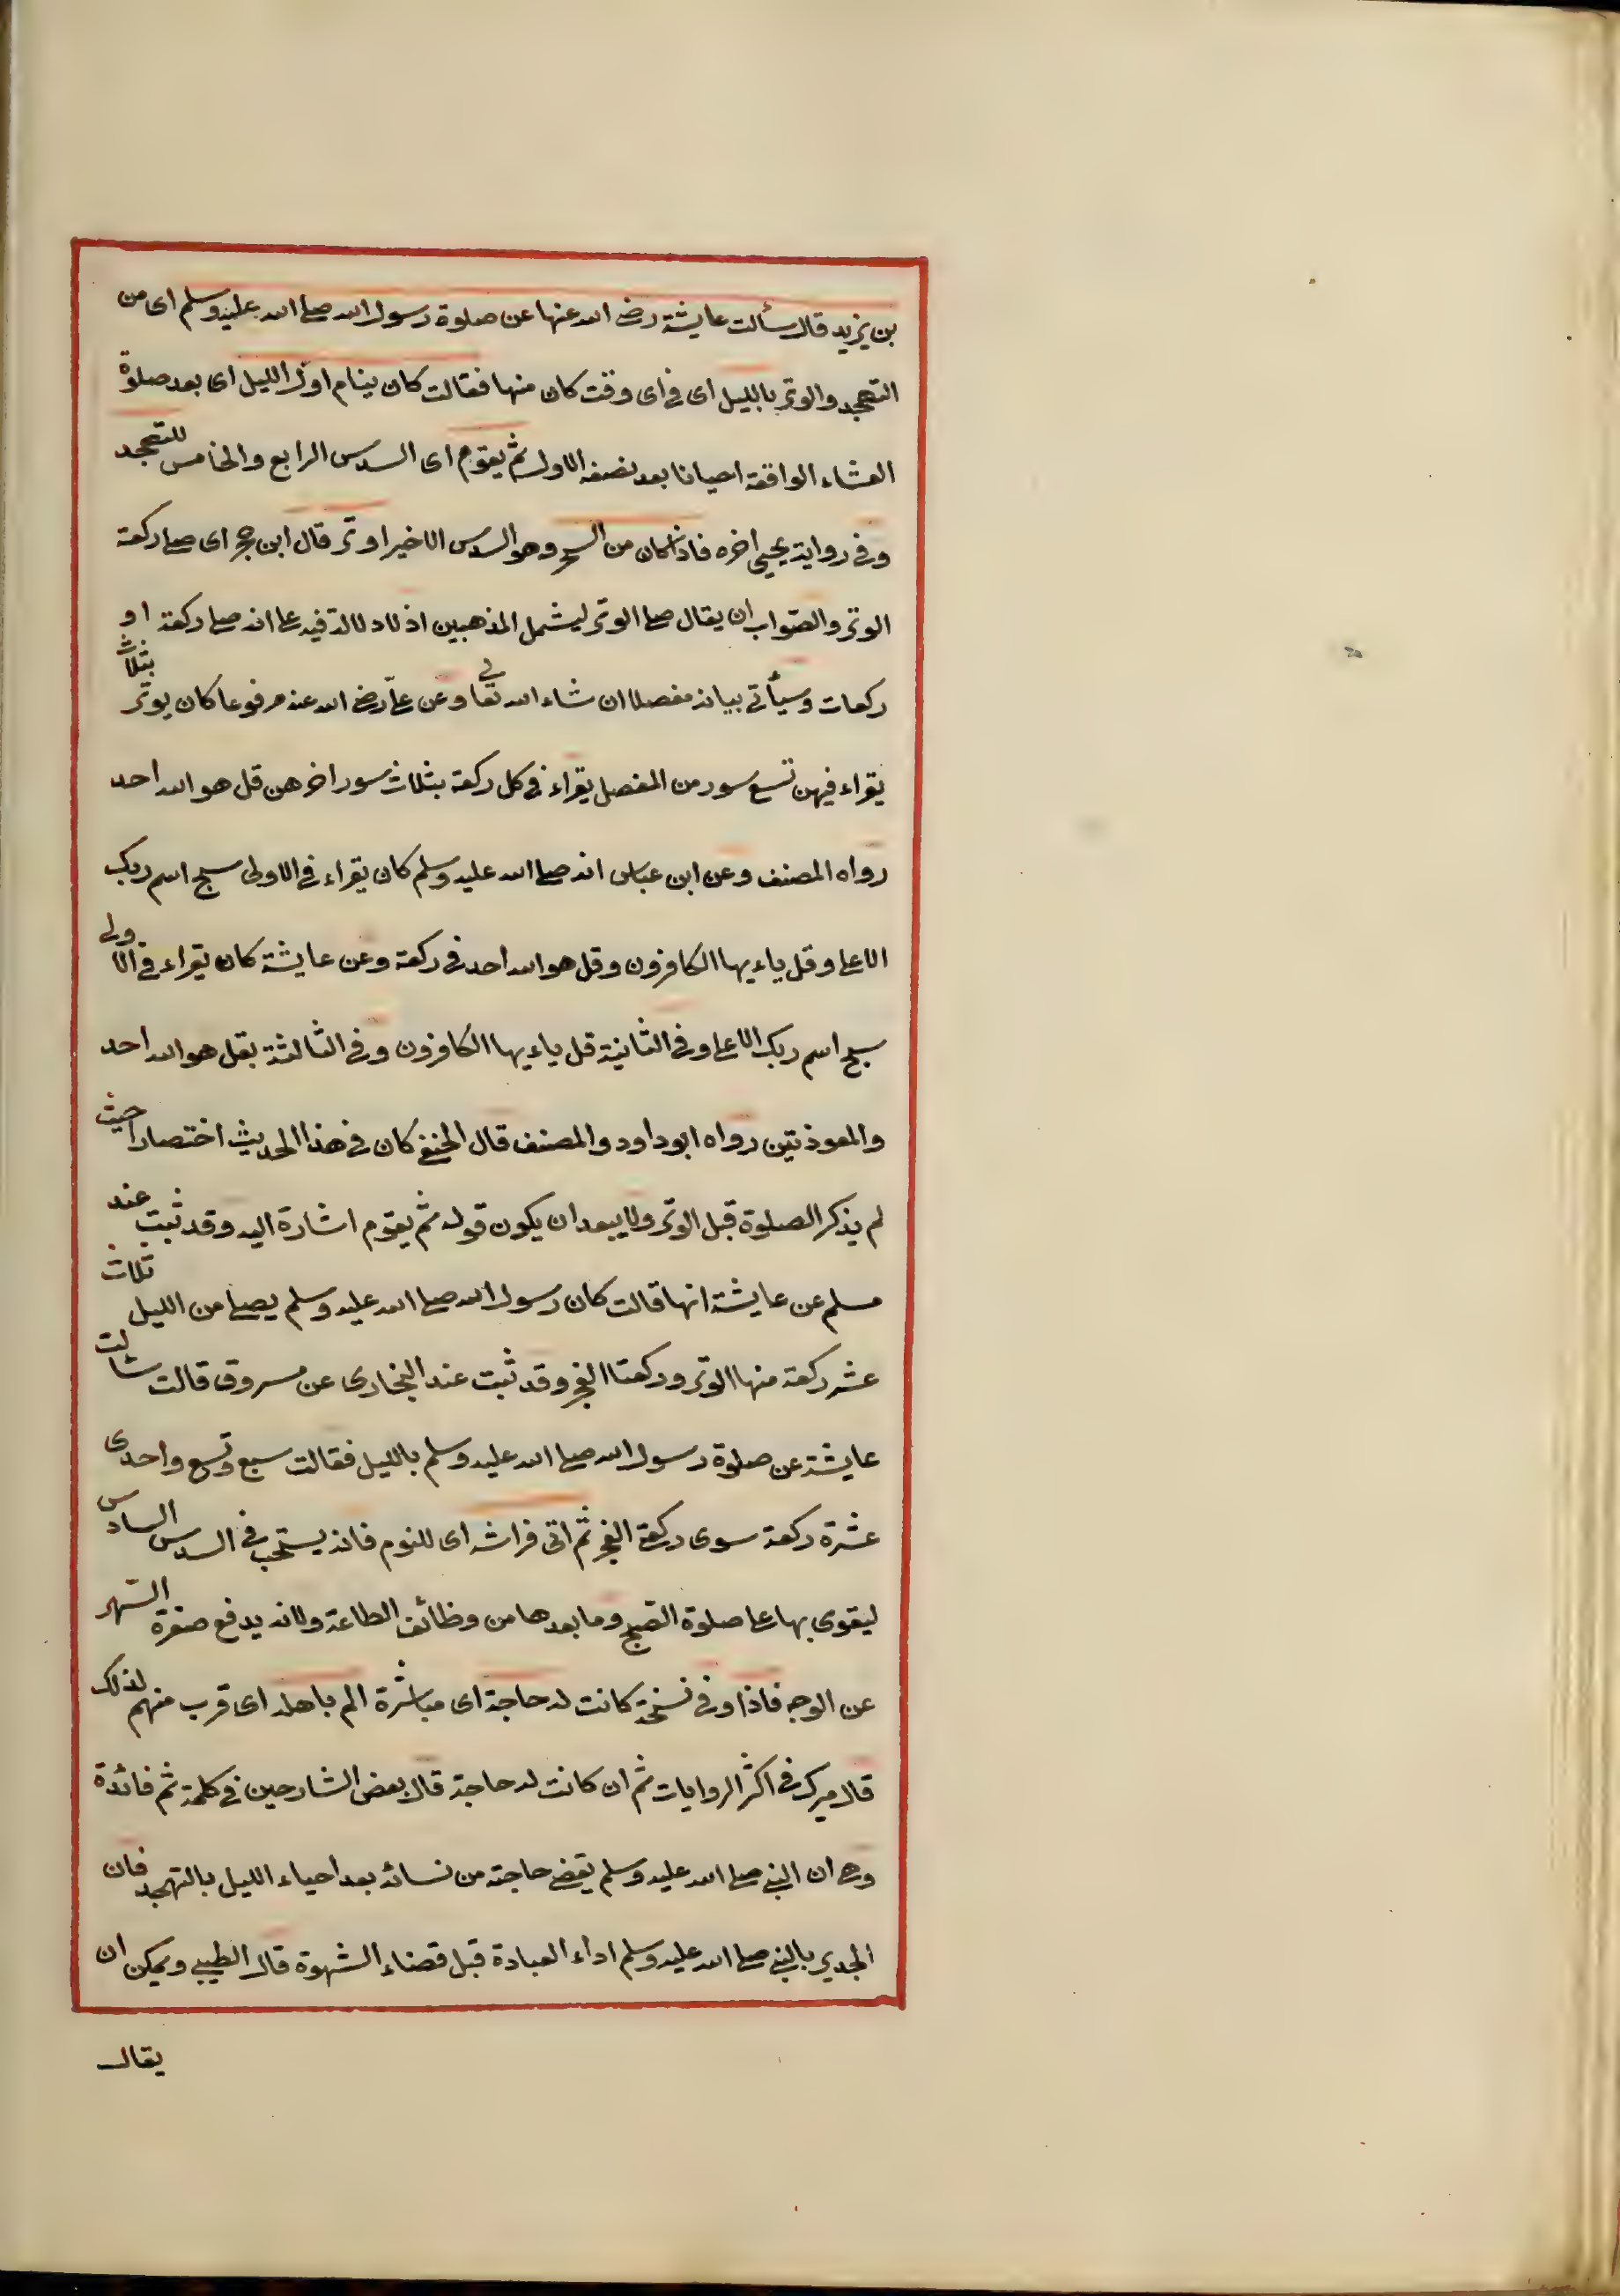 بن يزيد قال سألت عايشة رضي الله عنها عن صلوة رسول الله صلى الله عليه وسلم اى من
التهجد والوتر بالليل اى فى اى وقت كان منها فقالت كان ينام اول الليل اى بعد صلوة
العشاء الواقعة احيانا بعد نصفه الاول ثم يقوم اى السدس الرابع والخامس للتهجد
وفى رواية يحيى اخره فاذا كان من السحر وهو السدس الاخير اوتر قال ابن حجر اى صلى ركعة
الوتر والصواب ان يقال صلى الوتر ليشمل المذهبين اذ لا دلالة فيه على انه صلى ركعة او
ركعات وسيأتى بيانه مفصلا ان شاء الله تعالى وعن على رضي الله عنه مرفوعا كان يوتر بثلاث
يقراء فيهن تسع سور من المفصل يقراء فى كل ركعة بثلاث سور اخرهن قل هو الله احد
رواه المصنف وعن ابن عباس انه صلى الله عليه وسلم كان يقراء فى الاولى سبح اسم ربك
الاعلى وقل ياءيها الكافرون وقل هو الله احد فى ركعة وعن عايشة كان يقراء فى الاولى
سبح اسم ربك الاعلى وفى الثانية قل ياءيها الكافرون وفى الثالثة بقل هو الله احد
والمعوذتين رواه ابو داود والمصنف قال الحنفى كان فى هذا الحديث اختصارا حيث
لم يذكر الصلوة قبل الوتر ولا يبعد ان يكون قوله ثم يقوم اشارة اليه وقد ثبت عند
مسلم عن عايشة انها قالت كان رسول الله صلى الله عليه وسلم يصلى من الليل ثلاث
عشر ركعة منها الوتر وركعتا الفجر وقد ثبت عند البخارى عن مسروق قالت سالت
عايشة عن صلوة رسول الله صلى الله عليه وسلم بالليل فقالت سبع وتسع واحدى
عشرة ركعة سوى ركعة الفجر ثم اتى فراشه اى للنوم فانه يستحب فى السدس السادس
ليقوى بها على صلوة الصبح وما بعدها من وظائف الطاعة ولانه يدفع صفرة السهر
عن الوجه فاذا وفى نسخة كانت له حاجة اى مباشرة الم باهله اى قرب منهم لذلك
قال ميرك فى اكثر الروايات ثم ان كانت له حاجة قال بعض الشارحين فى كلمة ثم فائدة
وهى ان النبى صلى الله عليه وسلم يقضى حاجة من نسائه بعد احياء الليل بالتهجد فان
الجدير بالنبى صلى الله عليه وسلم اداء العبادة قبل قضاء الشهوة قال الطيبى ويمكن ان
يقال